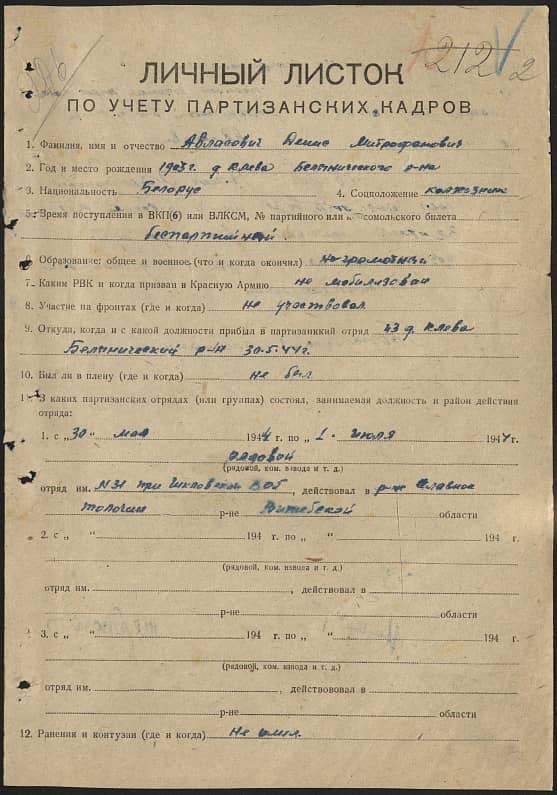 212 2
ЛИЧНЫЙ ЛИСТОК
ПО УЧЕТУ ПАРТИЗАНСКИХ КАДРОВ
1. Фамилия, имя и отчество Авласович Денис Митрофанович
2. Год и место рождения 1903г. д. Клева Белыничского р-на
3. Национальность Белорус 4. Соцположение колхозник
5. Время поступления в ВКП(б) или ВЛКСМ, № партийного или комсомольского билета
беспартийный
6. Образование: общее и военное (что и когда окончил) неграмотный
7. Каким РВК и когда призван в Красную Армию не мобилизован
8. Участие на фронтах (где и когда) не участвовал
9. Откуда, когда и с какой должности прибыл в партизанкий отряд д. Клева
Белыничский р-н 30.5.44г.
10. Был ли в плену (где и когда) не был
11. В каких партизанских отрядах (или группах) состоял, занимаемая должность и район действия
отряда:
1. с „30" мая 1944 г. по „1" июля 1944г.
рядовой
(рядовой, ком. взвода и т. д.)
отряд им. №31 при Шкловской ВОГ, действовал в р-не
р-не Витебской области
2. с „ " 194 г. по „ " 194 г.
(рядовой, ком. взвода и т. д.)
отряд им. , действовал в
р-не области
3. с „ " 194 г. по „ " 194 г.
(рядовой, ком. взвода и т. д.)
отряд им. , действововал в
р-не области
12. Ранения и контузии (где и когда) Не имел.